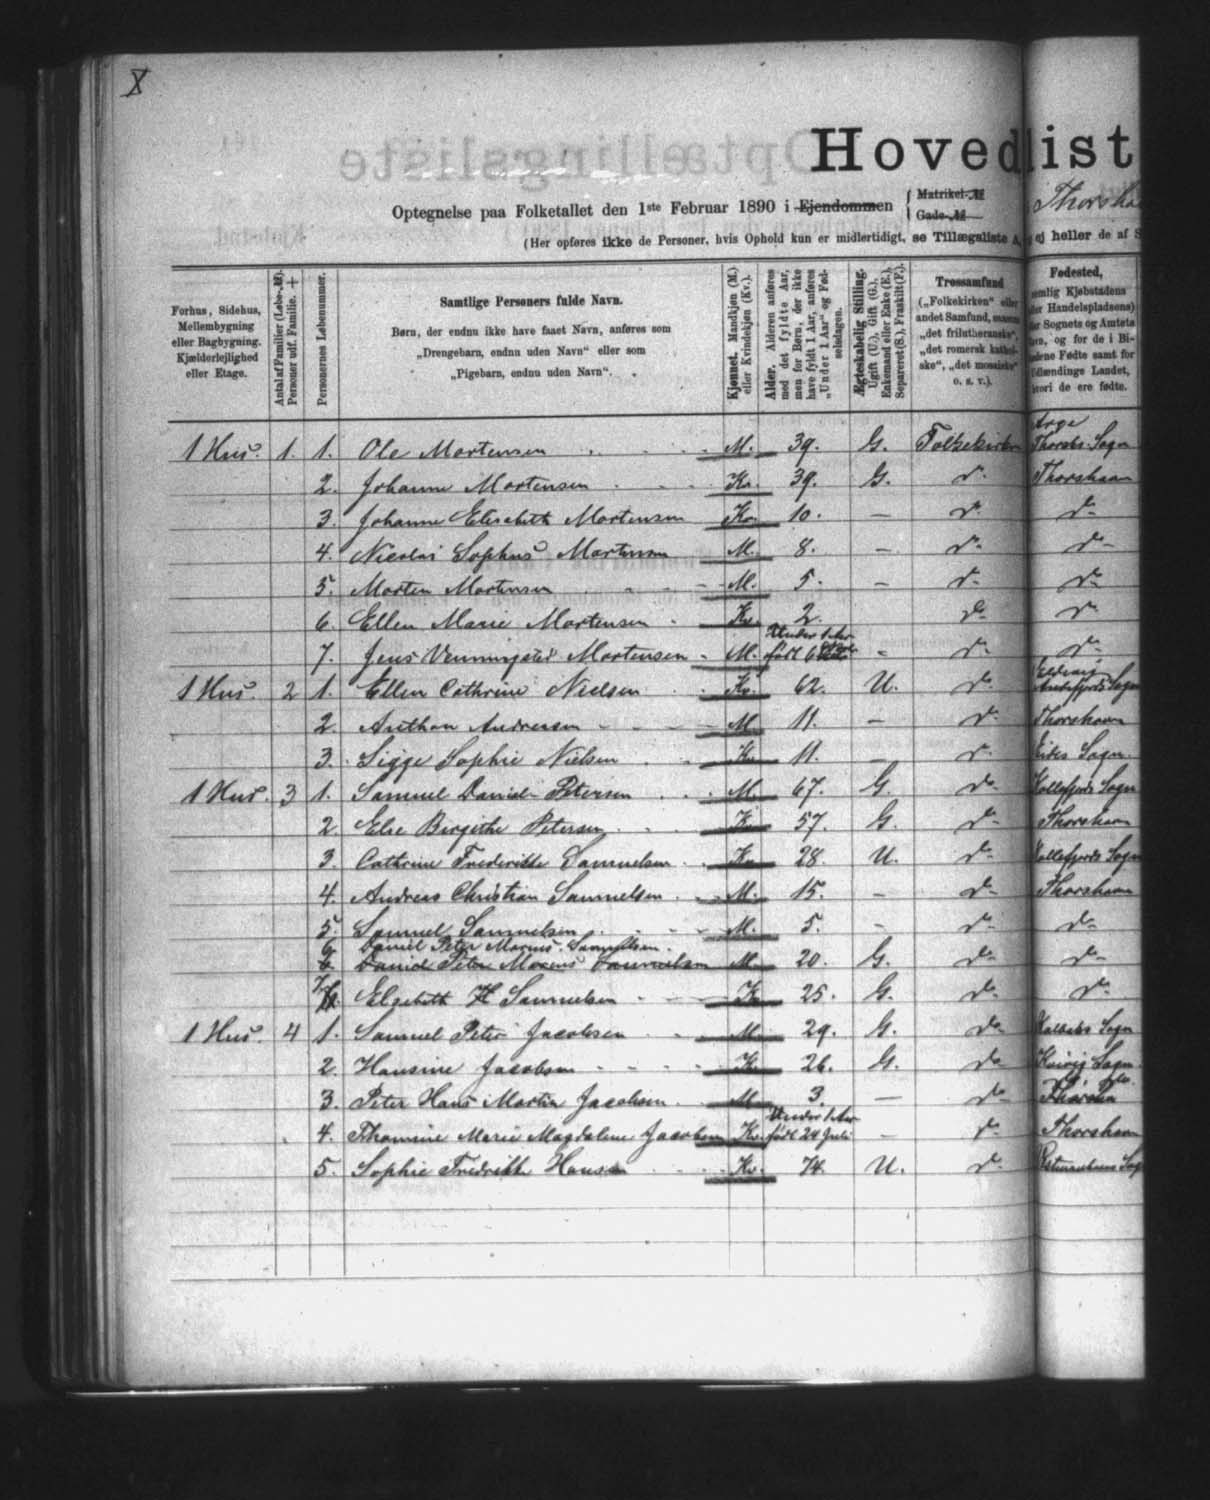 X
Hovedlist
Optegnelse paa Folketallet den 1ste Februar 1890 i Ejendommen
Matrikel-№
Gade-№
Thorsha
(Her opføres ikke de Personer, hvis Ophold kun er midlertidigt, se Tillægsliste A, ej heller de af S
Forhus, Sidehus, Mellembygning eller Bagbygning. Kjælderlejlighed eller Etage.
Antal af Familier (Løbe-№). Personer udf. Familie. +
Personernes Løbenummer.
Samtlige Personers fulde Navn.
Børn, der endnu ikke have faaet Navn, anføres som
„Drengebarn, endnu uden Navn“ eller som
„Pigebarn, endnu uden Navn“.
Kjønnet. Mandkjøn (M.) eller Kvindekjøn (Kv.).
Alder. Alderen anføres med det fyldte Aar, men for Børn, der ikke have fyldt 1 Aar, anføres „Under 1 Aar“ og Fødselsdagen.
Ægteskabelig Stilling. Ugift (U.), Gift (G.), Enkemand eller Enke (E.), Separeret (S.), Fraskilt (F.).
Trossamfund
(„Folkekirken“ eller
andet Samfund, saasom
„det frilutheranske“,
„det romersk kathol-
ske“, „det mosaiske“
o. s. v.).
Fødested,
emlig Kjøbstadens
er Handelspladsens)
er Sognets og Amtets
vn, og for de i Bi-
dene Fødte samt for
Udlændinge Landet,
vori de ere fødte.
1 Hus. 1. 1. Ole Mortensen M. 39. G. Folkekirken Arge Thorsh. Sogn
2. Johanne Mortensen Kv. 39. G. do Thorshavn
3. Johanne Elisabeth Mortensen Kv. 10. — do do
4. Nicolai Sophus Mortensen M. 8. — do do
5. Morten Mortensen M. 5. — do do
6. Ellen Marie Mortensen Kv. 2. do do
7. Jens Venningsted Mortensen M. Under 1 Aar født 6 - do do
1 Hus. 2 1. Ellen Cathrine Nielsen Kv. 62. U. do Sogn
2. Anthon Andreasen M. 11. — do Thorshavn
3. Sigge Sophie Nielsen Kv. 11. — do Eides Sogn
1 Hus. 3 1. Samuel Daniel Petersen M. 67. G. do Kollefjords Sogn
2. Else Birgithe Petersen K. 57. G. do Thorshavn
3. Cathrine Frederikke Samuelsen Kv. 28. U. do Kollefjords Sogn
4. Andreas Christian Samuelsen M. 15. - do Thorshavn
5. Samuel Samuelsen M. 5. - do do
6 Daniel Peter Marius Samuelsen.
6. Daniel Peter Marius Samuelsen M. 20. G. do do
7. Elsebeth H Samuelsen K. 25. G. do do
1 Hus. 4 1. Samuel Peter Jacobsen M. 29. G. do Kalbaks Sogn
2. Hansine Jacobsen Kv. 26. G. do Kvivig Sogn
3. Peter Hans Martin Jacobsen M. 3. — do do
4. Thomine Marie Magdalene Jacobsen Kv. Under 1 Aar født 24 Juli — do Thorshavn
5. Sophie Fredrikke Hansen Kv. 74. U. do Sog